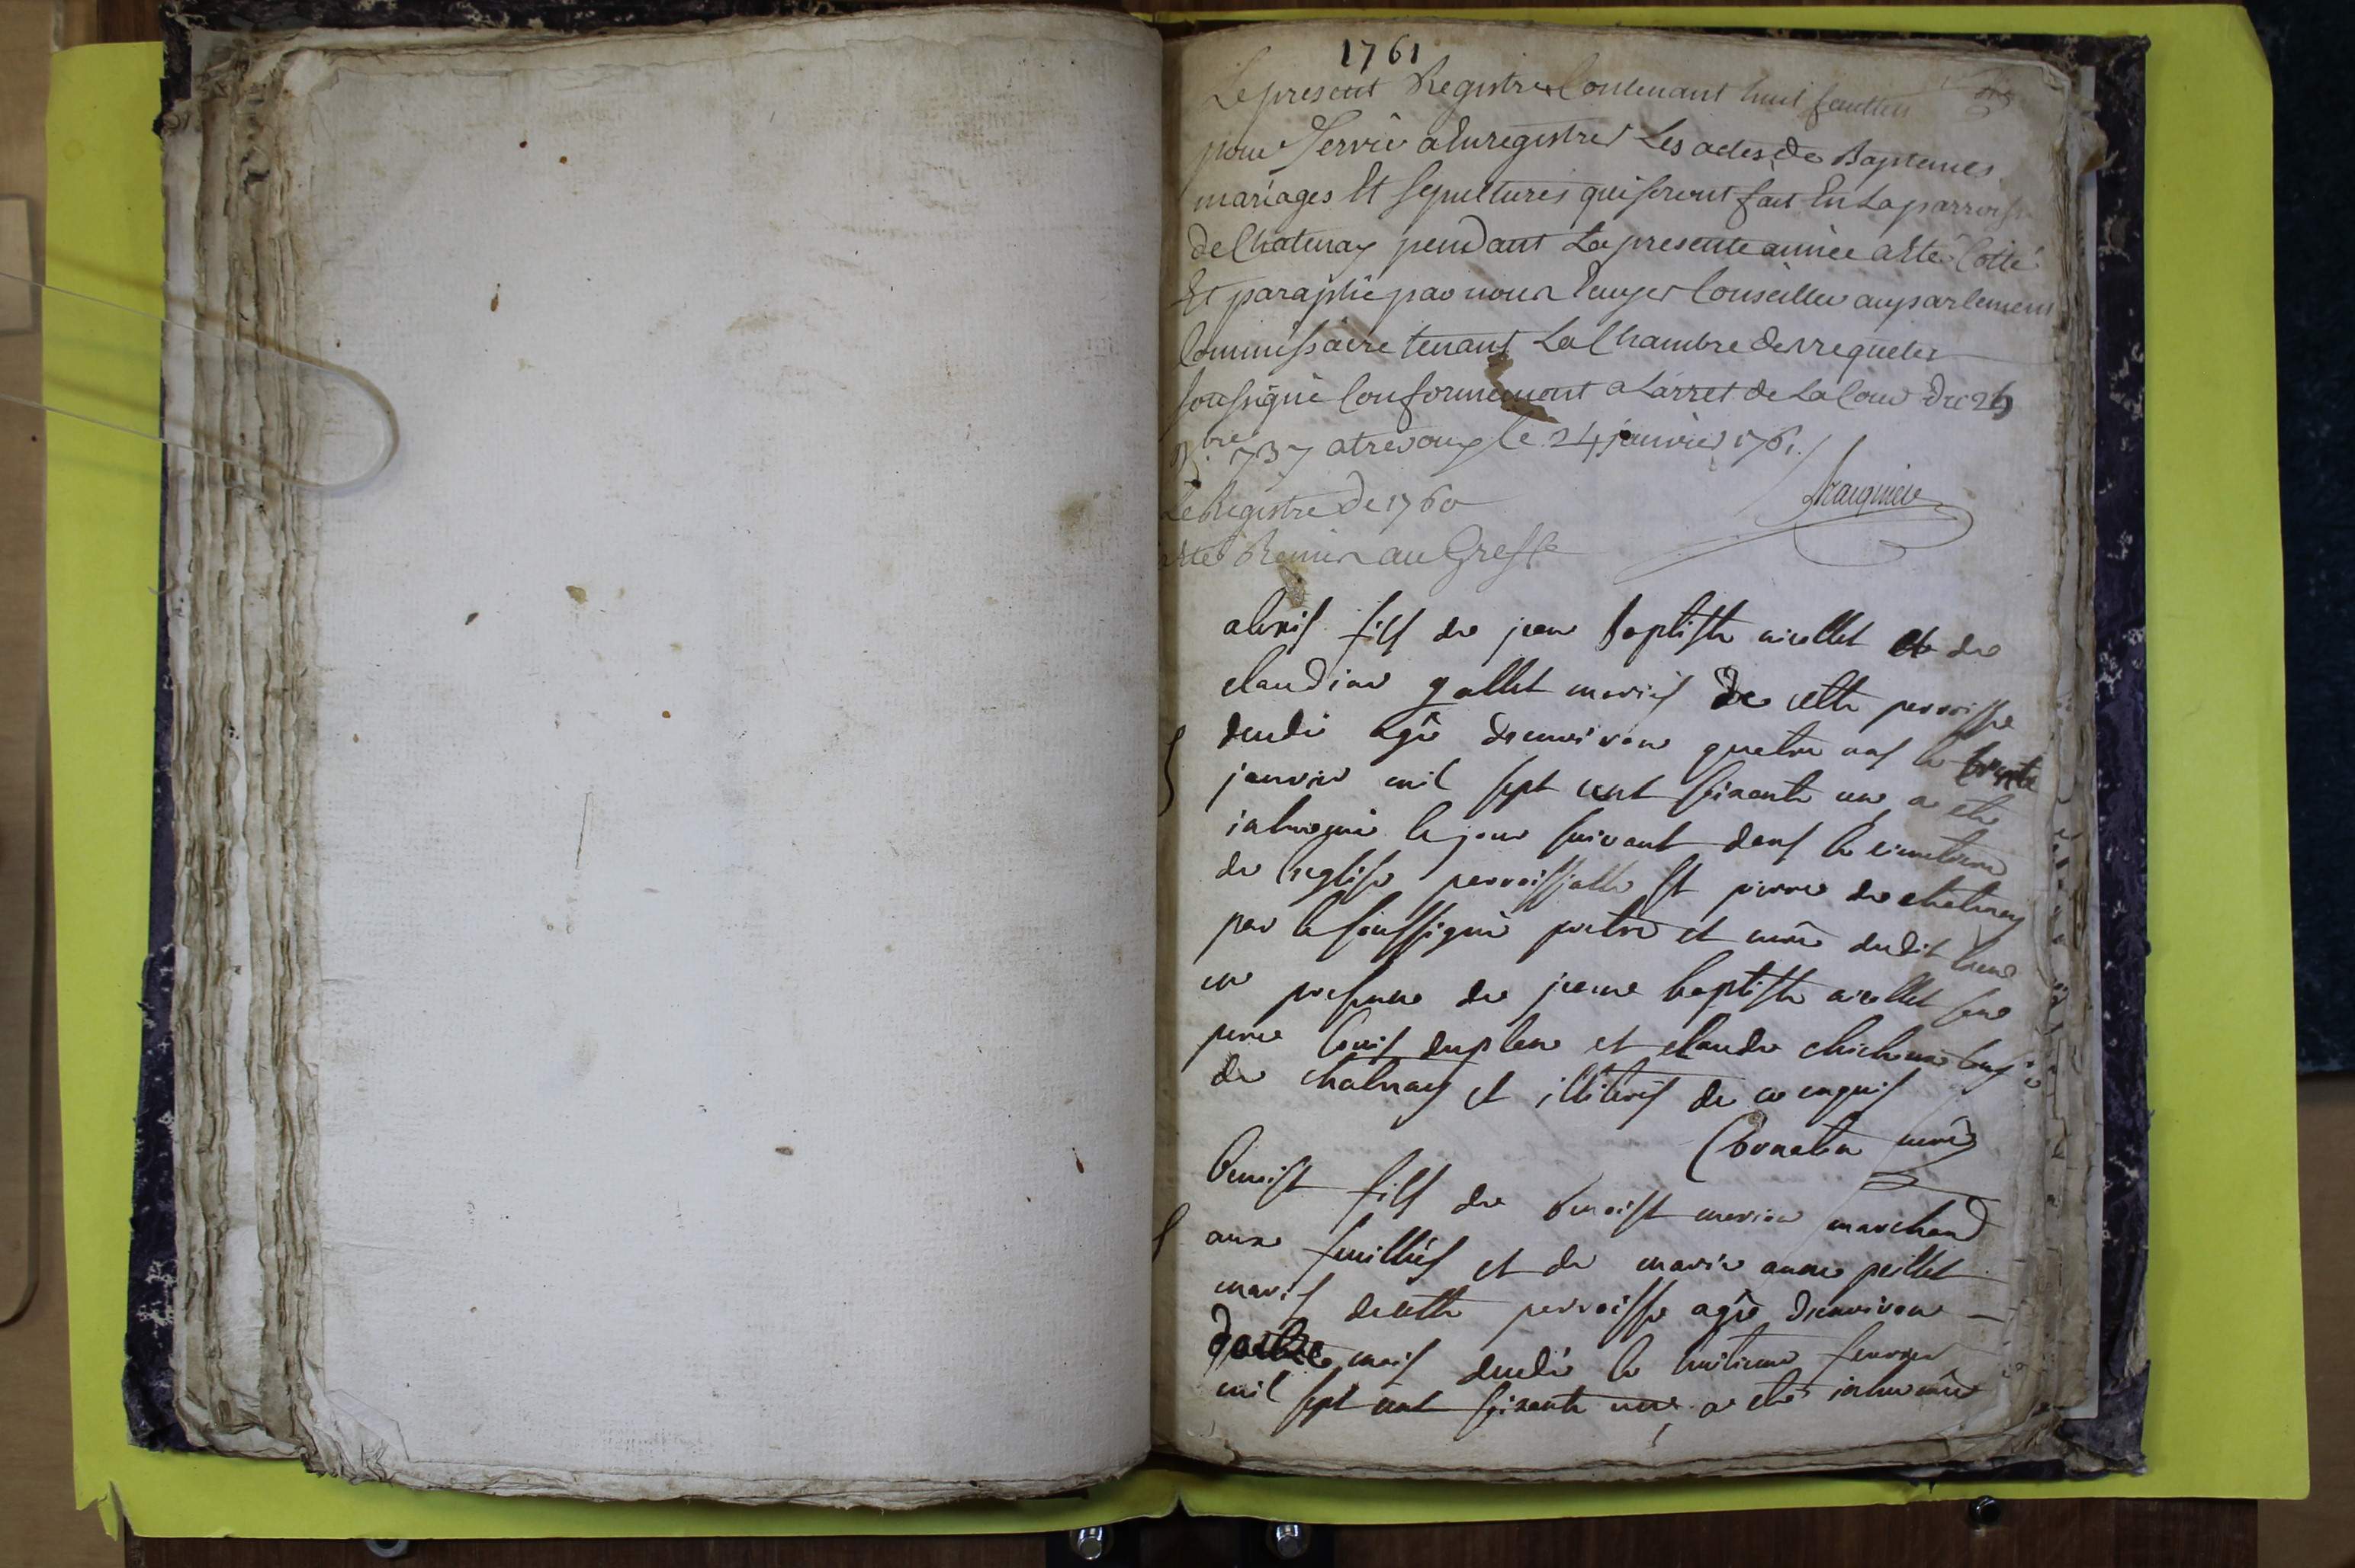 1761
Le present Registre Contenant huit feuillets
pour Servir a Enregistrer Les actes de Baptemes
mariages Et sepultures qui seront fait En La parroisse
de Chatenay pendant La presente année a Eté Cotté
Et paraphé par nous Conseiller au parlement
Commissaire tenant La Chambre des requetes
soussigné Conformement a Larret de La Cour du
1737 a trevoux le 24 janvier 1761.
Le Registre de 1760
a Eté Remis au Greffe
fils de jean baptiste et de
claudine gallet mariés de cette perroisse
decedé agé denviron quatre ans le trente
janvier mil sept cent soixante un a eté
inhumé le jour suivant dans le cimetiere
de leglise perroissialle St pierre de chatenay
par le soussigné pretre et curé dudit lieu
en presence de jean baptiste son
pere louis duplan et claude tous
de chatenay et illiterés de ce enquis
curé
benoist fils de benoist marion marchand
aux feuilliés et de marie anne peillet
mariés de cette perroisse agé denviron
mois decedé le huitieme fevrier
mil sept cent soixante un a eté inhumé